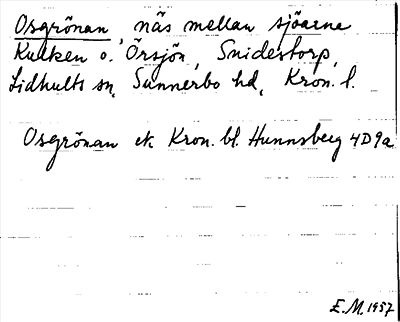 Osgrönan, näs mellan sjöarne
Kulken o. Örsjön, Snidestorp,
Lidhults sn, Sunnerbo hd, Kron. l.
Osgrönan ek. Kron. bl. Hunnsberg 4D9a
E.M. 1957